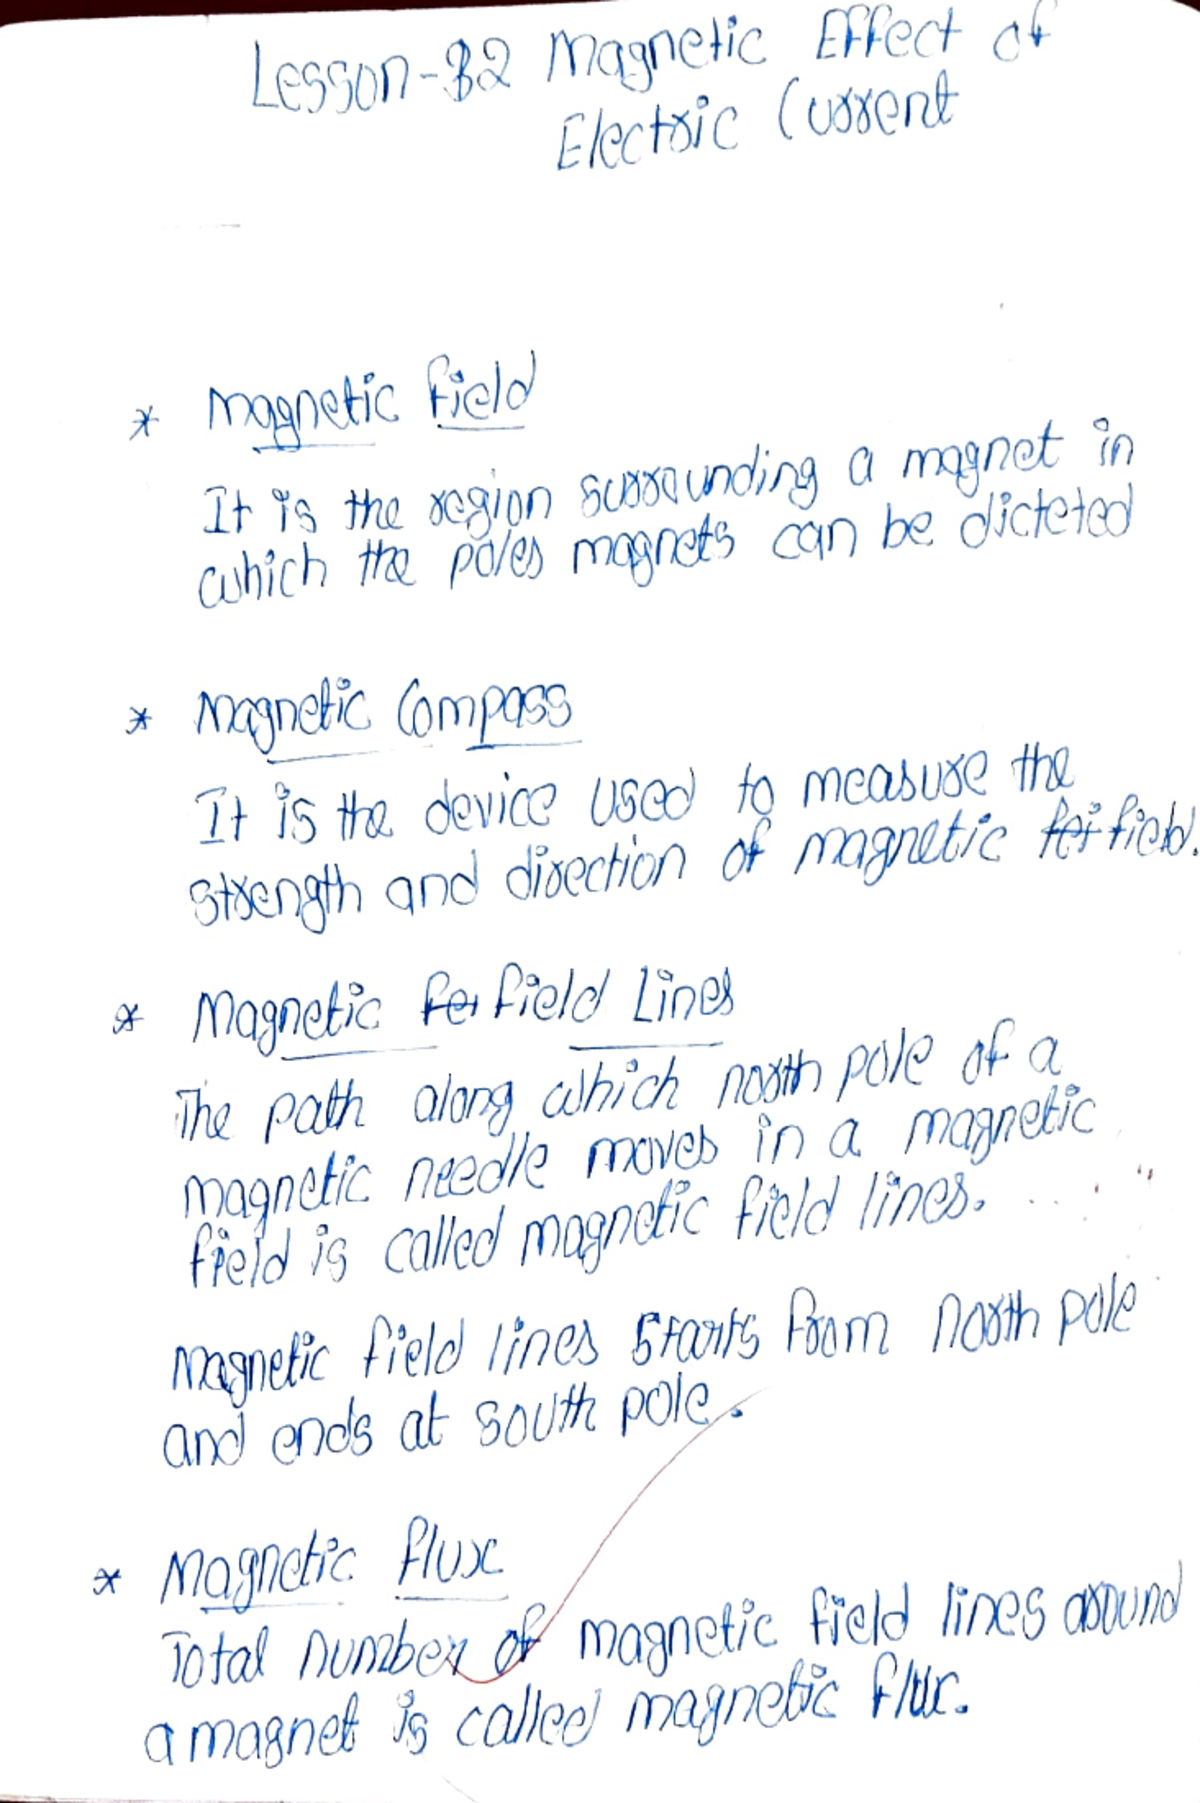 Lesson-32 Magnetic Effect of
Electric Current
* Magnetic field
It is the region surrounding a magnet in
which the poles magnets can be dicteted
* Magnetic Compass
It is the device used to measure the
strength and direction of magnetic fei field.
* Magnetic fei field Lines
The path along which north pole of a
magnetic needle moves in a magnetic
field is called magnetic field lines.
Magnetic field lines starts from north pole
and ends at south pole.
* Magnetic flux
Total number of magnetic field lines around
a magnet is called magnetic flux.